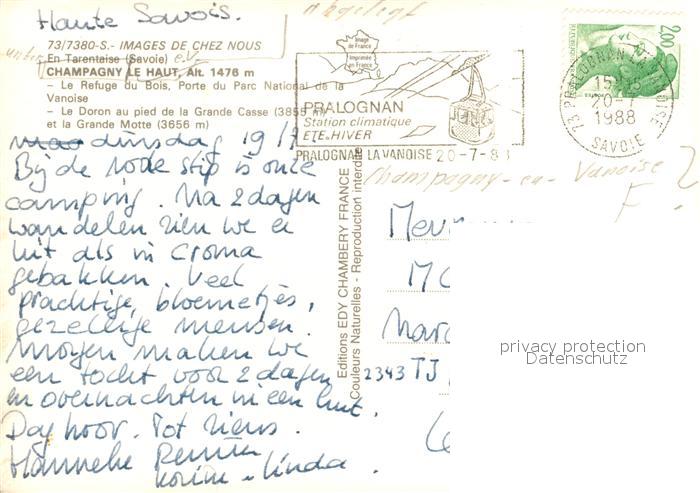 Haute Savois.
abgelegt
73/7380-S.- IMAGES DE CHEZ NOUS
En Tarentaise (Savoie)
CHAMPAGNY LE HAUT, Alt. 1476 m
– Le Refuge du Bois, Porte du Parc National de la
Vanoise
– Le Doron au pied de la Grande Casse (3855 m)
et la Grande Motte (3656 m)
Image
de France
Imprimée
en France
PRALOGNAN
Station climatique
ETE & HIVER
PRALOGNAN LA VANOISE 20-7-88
2,00
73 PRALOGNAN LA VANOISE
20-7
1988
SAVOIE
Champagny-en-Vanoise?
F
dinsdag 19/7
Bij de rode stip is onze
camping. Na 2 dagen
wandelen zien we er
uit als in croma
gebakken. Veel
prachtige bloemetjes,
gezellige mensen.
Morgen maken we
een tocht voor 2 dagen
en overnachten in een hut.
Dag hoor. Tot ziens.
Hanneke
Korine - Linda.
Editions EDY CHAMBERY FRANCE
Couleurs Naturelles - Reproduction interdite
2343 TJ
privacy protection
Datenschutz